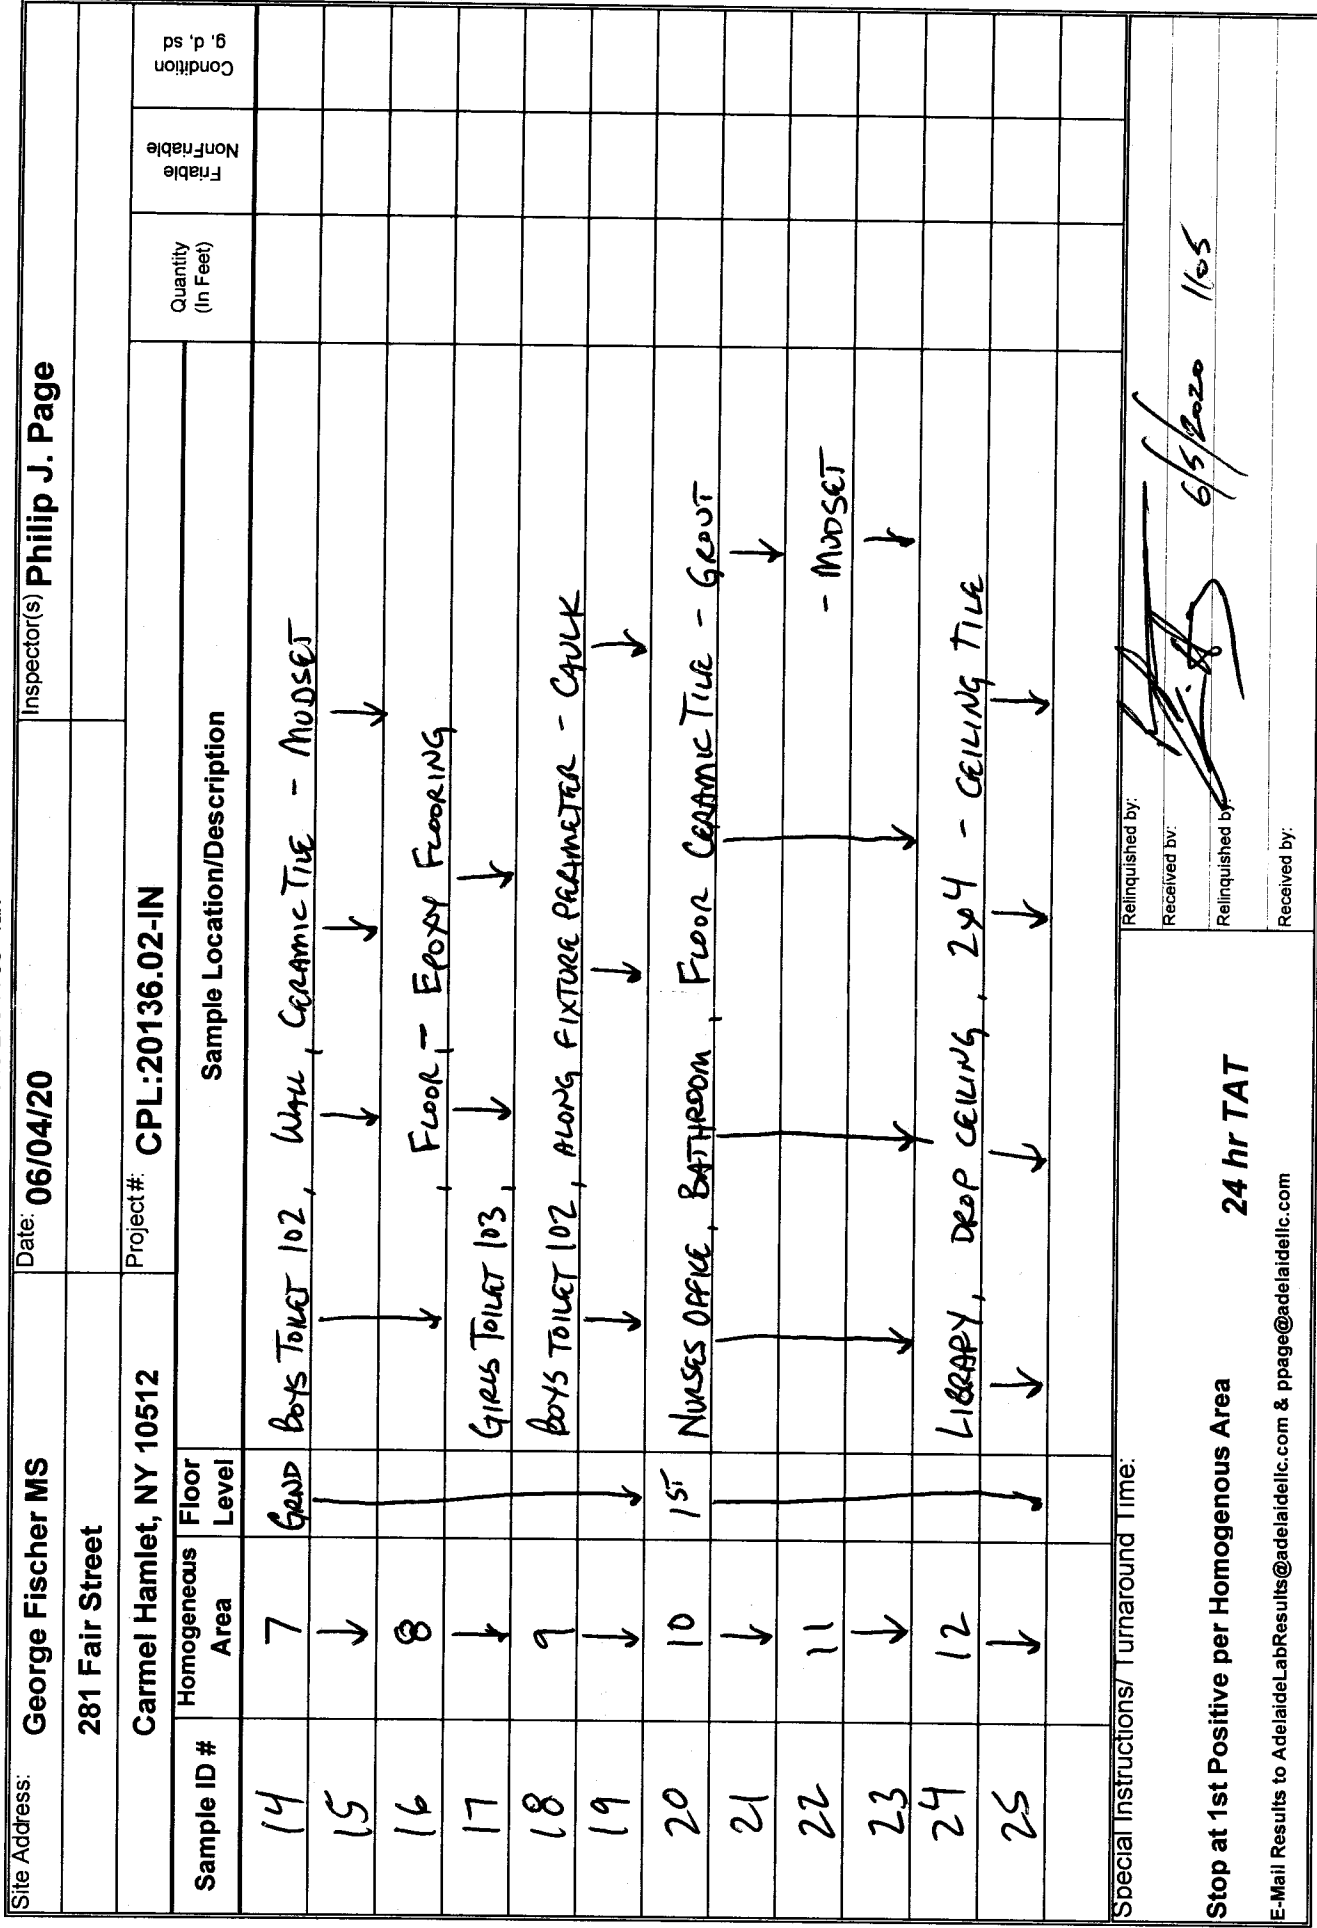 Site Address: George Fischer MS Date: 06/04/20 Inspector(s) Philip J. Page
281 Fair Street
Carmel Hamlet, NY 10512 Project #: CPL:20136.02-IN
Sample ID # Homogeneous Area Floor Level Sample Location/Description Quantity (In Feet) Friable NonFriable Condition g, d, sd
14 7 GRND BOYS TOILET 102, WALL, CERAMIC TILE - MUDSET
15 ↓ ↓ ↓ ↓ ↓
16 8 , FLOOR, - EPOXY FLOORING
17 ↓ GIRLS TOILET 103, ↓ ↓
18 9 BOYS TOILET 102, ALONG FIXTURE PERIMETER - CAULK
19 ↓ ↓ ↓ ↓
20 10 1ST NURSES OFFICE, BATHROOM, FLOOR CERAMIC TILE - GROUT
21 ↓ ↓ ↓ ↓ ↓ ↓
22 11 - MUDSET
23 ↓ ↓
24 12 LIBRARY, DROP CEILING, 2x4 - CEILING TILE
25 ↓ ↓ ↓ ↓ ↓
Special Instructions/ Turnaround Time:
Stop at 1st Positive per Homogenous Area 24 hr TAT
E-Mail Results to AdelaideLabResults@adelaidellc.com & ppage@adelaidellc.com
Relinquished by:
Received by:
6/5/2020 1105
Relinquished by:
Received by: